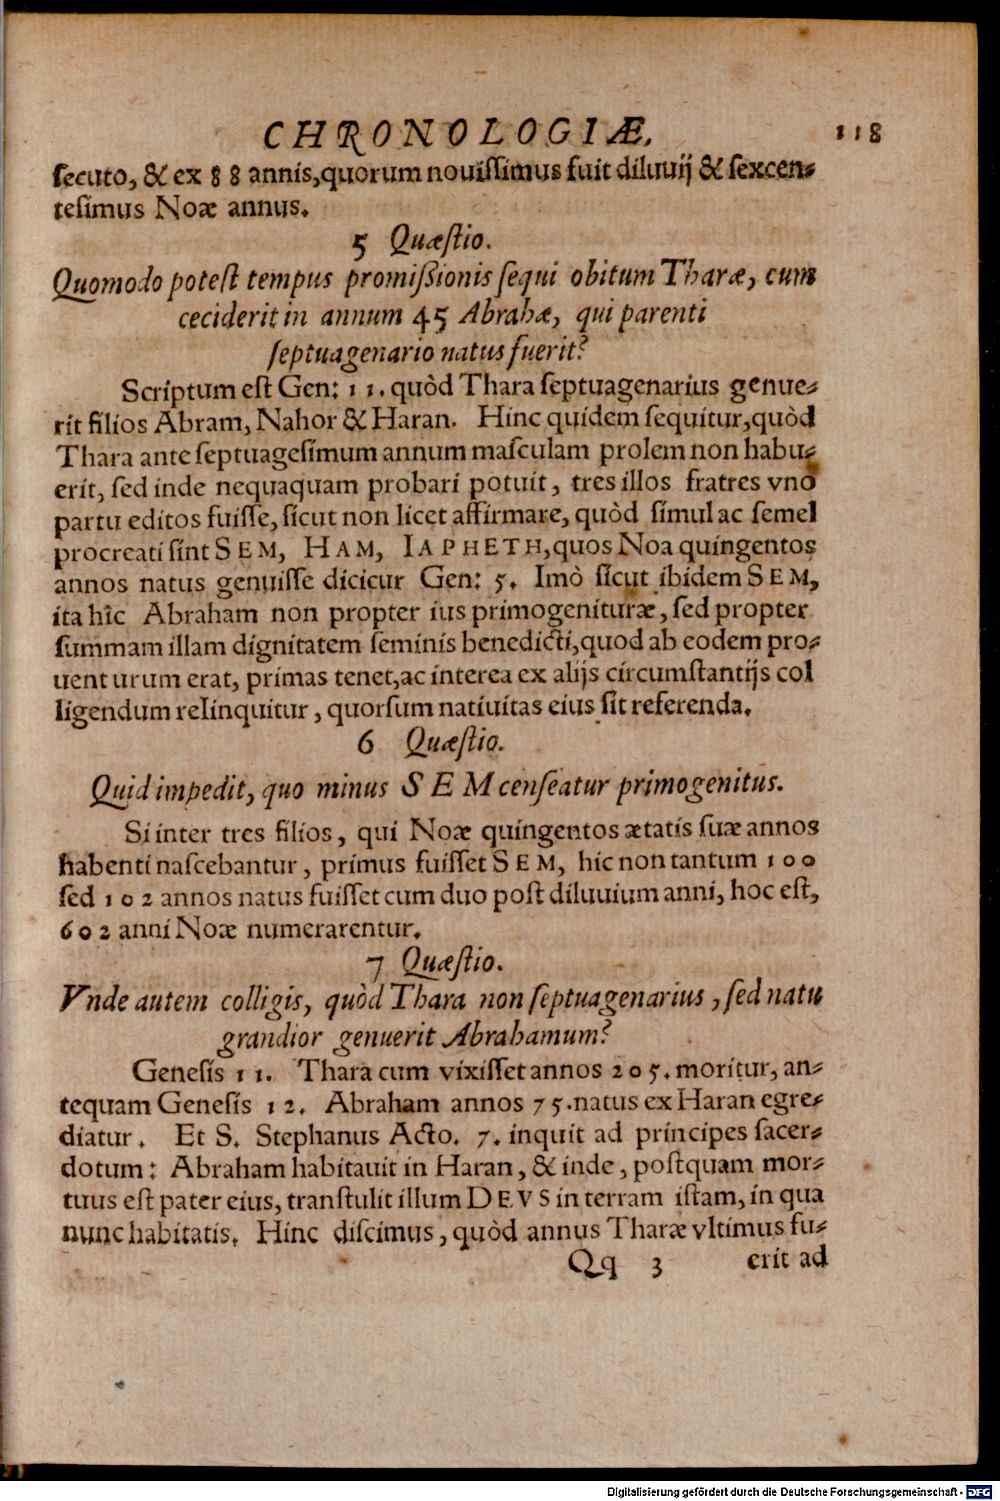 CHRONOLOGIÆ. 118
secuto, & ex 88 annis, quorum nouissimus fuit diluuij & sexcen-
tesimus Noæ annus.
5 Quæstio.
Quomodo potest tempus promißionis sequi obitum Tharæ, cum
ceciderit in annum 45 Abrahæ, qui parenti
septuagenario natus fuerit?
Scriptum est Gen: 11. quòd Thara septuagenarius genue-
rit filios Abram, Nahor & Haran. Hinc quidem sequitur, quòd
Thara ante septuagesimum annum masculam prolem non habu-
erit, sed inde nequaquam probari potuit, tres illos fratres vno
partu editos fuisse, sicut non licet affirmare, quòd simul ac semel
procreati sint SEM, HAM, IAPHETH, quos Noa quingentos
annos natus genuisse dicicur Gen: 5. Imò sicut ibidem SEM,
ita hîc Abraham non propter ius primogenituræ, sed propter
summam illam dignitatem seminis benedicti, quod ab eodem pro-
uenturum erat, primas tenet, ac interea ex alijs circumstantijs col
ligendum relinquitur, quorsum natiuitas eius sit referenda.
6 Quæstio.
Quid impedit, quo minus SEM censeatur primogenitus.
Si inter tres filios, qui Noæ quingentos ætatis suæ annos
habenti nascebantur, primus fuisset SEM, hic non tantum 100
sed 102 annos natus fuisset cum duo post diluuium anni, hoc est,
602 anni Noæ numerarentur.
7 Quæstio.
Vnde autem colligis, quòd Thara non septuagenarius, sed natu
grandior genuerit Abrahamum?
Genesis 11. Thara cum vixisset annos 205. moritur, an-
tequam Genesis 12. Abraham annos 75. natus ex Haran egre-
diatur. Et S. Stephanus Acto. 7. inquit ad principes sacer-
dotum: Abraham habitauit in Haran, & inde, postquam mor-
tuus est pater eius, transtulit illum DEVS in terram istam, in qua
nunc habitatis. Hinc discimus, quòd annus Tharæ vltimus fu-
Qq 3 erit ad
Digitalisierung gefördert durch die Deutsche Forschungsgemeinschaft - DFG